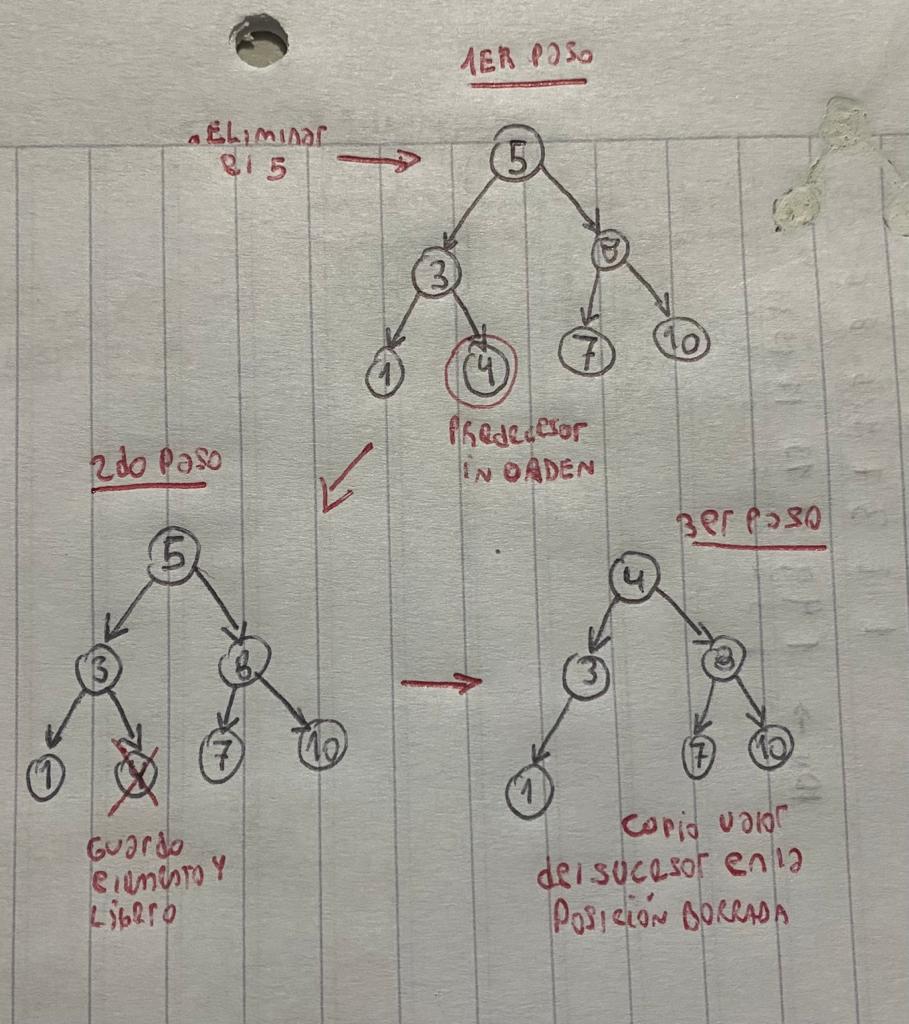 1ER PASO
• Eliminar
el 5
5
3
8
1
4
7
10
Predecesor
IN ORDEN
2do Paso
5
3
8
1
4
7
10
Guardo
elemento y
Libero
3er Paso
4
3
8
1
7
10
copio valor
del sucesor en la
POSICIÓN BORRADA